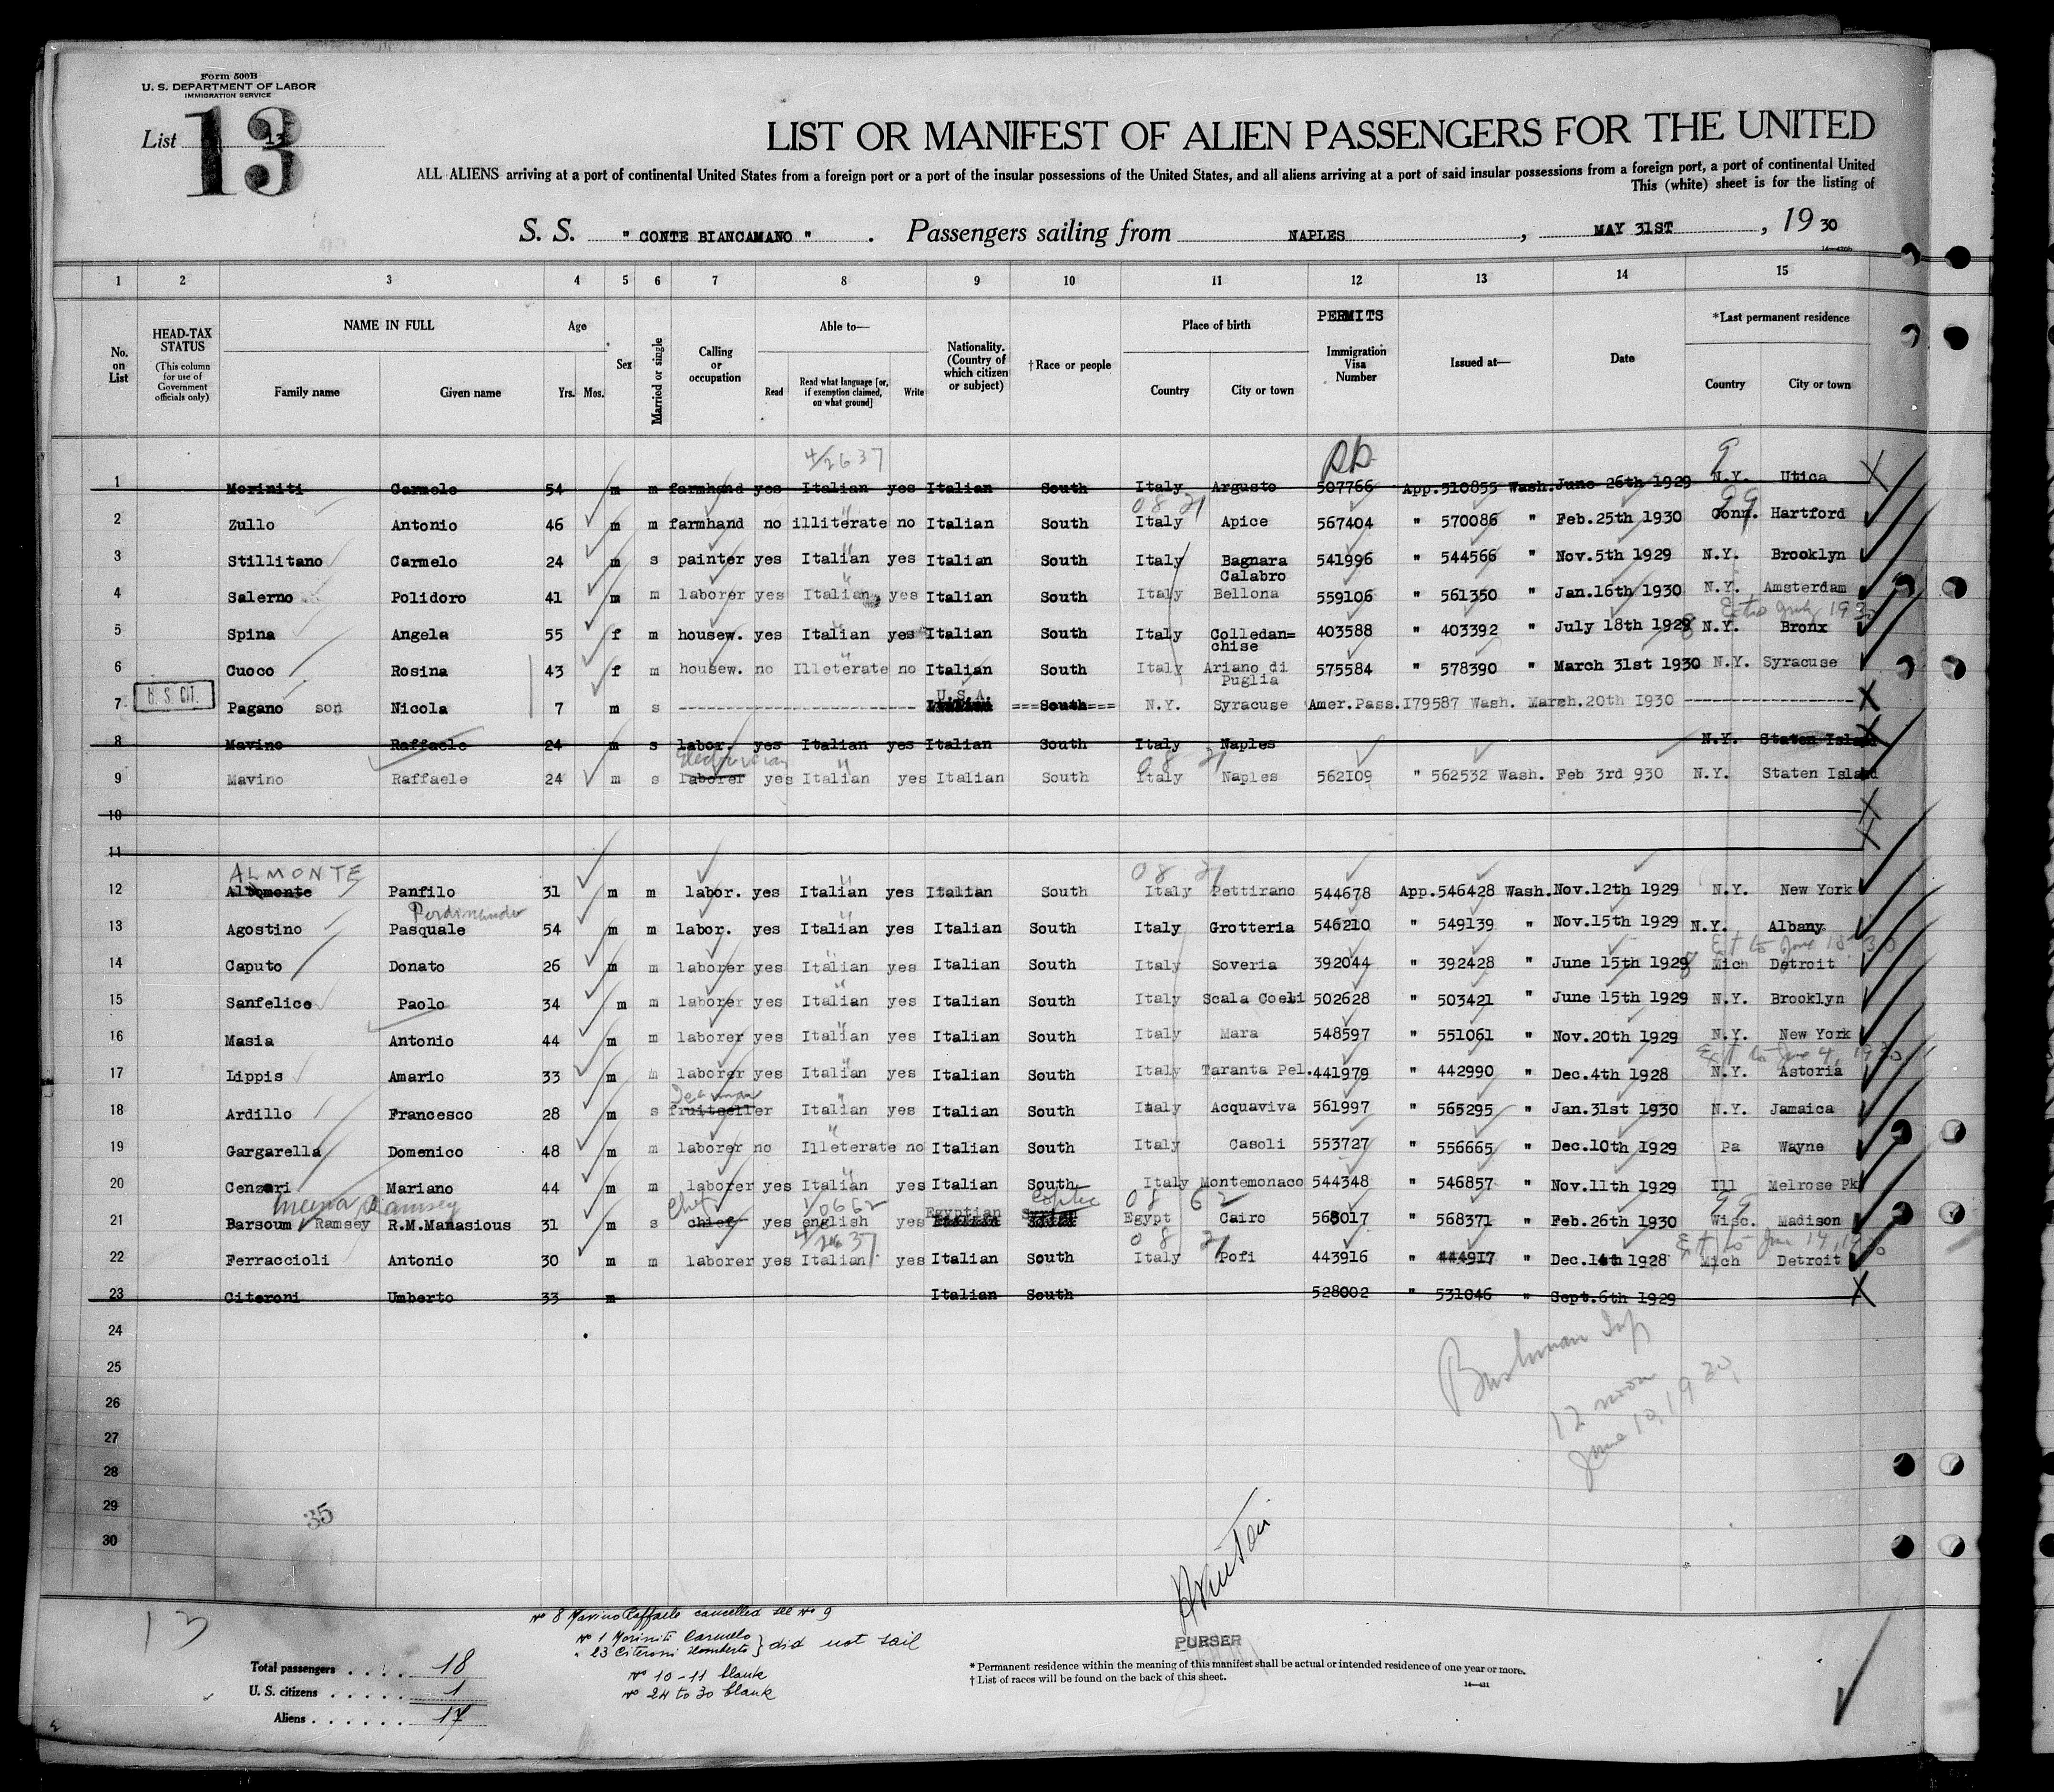 Form 500B
U. S. DEPARTMENT OF LABOR
IMMIGRATION SERVICE
List 13
13
LIST OR MANIFEST OF ALIEN PASSENGERS FOR THE UNITED
ALL ALIENS arriving at a port of continental United States from a foreign port or a port of the insular possessions of the United States, and all aliens arriving at a port of said insular possessions from a foreign port, a port of continental United
This (white) sheet is for the listing of
S. S. " CONTE BIANCAMANO " . Passengers sailing from NAPLES , MAY 31ST , 19 30
1 2 3 4 5 6 7 8 9 10 11 12 13 14 15
No. on List
HEAD-TAX STATUS
(This column for use of Government officials only)
NAME IN FULL
Family name Given name
Age
Yrs. Mos.
Sex
Married or single
Calling or occupation
Able to—
Read Read what language [or, if exemption claimed, on what ground] Write
Nationality. (Country of which citizen or subject)
†Race or people
Place of birth
Country City or town
PERMITS
Immigration Visa Number
Issued at—
Date
*Last permanent residence
Country City or town
4/2637
9
1 Moriniti Carmelo 54 m m farmhand yes Italian yes Italian South Italy Argusto 507766 App.510855 Wash. June 26th 1929 N.Y. Utica
08 21 99
2 Zullo Antonio 46 m m farmhand no illiterate no Italian South Italy Apice 567404 " 570086 " Feb.25th 1930 Conn. Hartford
3 Stillitano Carmelo 24 m s painter yes Italian yes Italian South Italy Bagnara Calabro 541996 " 544566 " Nov.5th 1929 N.Y. Brooklyn
4 Salerno Polidoro 41 m m laborer yes Italian yes Italian South Italy Bellona 559106 " 561350 " Jan.16th 1930 N.Y. Amsterdam
5 Spina Angela 55 f m housew. yes Italian yes Italian South Italy Colledan=chise 403588 " 403392 " July 18th 1929 N.Y. Bronx
6 Cuoco Rosina 43 f m housew. no Illeterate no Italian South Italy Ariano di Puglia 575584 " 578390 " March 31st 1930 N.Y. Syracuse
U. S. CIT.
7 Pagano son Nicola 7 m s U.S.A. Italian South N.Y. Syracuse Amer.Pass.I79587 Wash. March.20th I930
8 Mavino Raffaele 24 m s labor. yes Italian yes Italian South Italy Naples N.Y. Staten Island
08 21
9 Mavino Raffaele 24 m s laborer yes Italian yes Italian South Italy Naples 562I09 " 562532 Wash. Feb 3rd 930 N.Y. Staten Island
10
11
ALMONTE 08 21
12 Panfilo 31 m m labor. yes Italian yes Italian South Italy Pettirano 544678 App.546428 Wash. Nov.12th 1929 N.Y. New York
13 Agostino Pasquale 54 m m labor. yes Italian yes Italian South Italy Grotteria 546210 " 549139 " Nov.15th 1929 N.Y. Albany
Ext to June 15 30
14 Caputo Donato 26 m m laborer yes Italian yes Italian South Italy Soveria 392044 " 392428 " June 15th 1929 Mich Detroit
15 Sanfelice Paolo 34 m m laborer yes Italian yes Italian South Italy Scala Coeli 502628 " 503421 " June 15th 1929 N.Y. Brooklyn
16 Masia Antonio 44 m m laborer yes Italian yes Italian South Italy Mara 548597 " 551061 " Nov.20th 1929 N.Y. New York
Ext to June 4, 1930
17 Lippis Amario 33 m m laborer yes Italian yes Italian South Italy Taranta Pel. 441979 " 442990 " Dec.4th 1928 N.Y. Astoria
18 Ardillo Francesco 28 m s fruitseller Italian yes Italian South Italy Acquaviva 561997 " 565295 " Jan.31st 1930 N.Y. Jamaica
19 Gargarella Domenico 48 m m laborer no Illeterate no Italian South Italy Casoli 553727 " 556665 " Dec.10th 1929 Pa Wayne
20 Cenzari Mariano 44 m m laborer yes Italian yes Italian South Italy Montemonaco 544348 " 546857 " Nov.11th 1929 Ill Melrose Pk
Ramsey Chef 10662 Coptic 08 62 99
21 Barsoum Ramsey R.M.Manasious 31 m s chief yes english yes Egyptian Syrian Egypt Cairo 568017 " 568371 " Feb.26th 1930 Wisc. Madison
4/2637 08 21 Ext to June 14, 1930
22 Ferraccioli Antonio 30 m m laborer yes Italian yes Italian South Italy Pofi 443916 " 444917 " Dec.14th 1928 Mich Detroit
23 Citeroni Umberto 33 m Italian South 528002 " 531046 " Sept.6th 1929
24
25
26
27
28
29
30
Bushman Insp
12 noon
June 10, 1930,
35
13
No 8 Mavino Raffaele cancelled see No 9
No 1 Moriniti Carmelo
" 23 Citeroni Umberto } did not sail
No 10-11 blank
No 24 to 30 blank
Total passengers . . . . 18
U. S. citizens . . . . . 1
Aliens . . . . . . 17
PURSER
* Permanent residence within the meaning of this manifest shall be actual or intended residence of one year or more.
† List of races will be found on the back of this sheet.